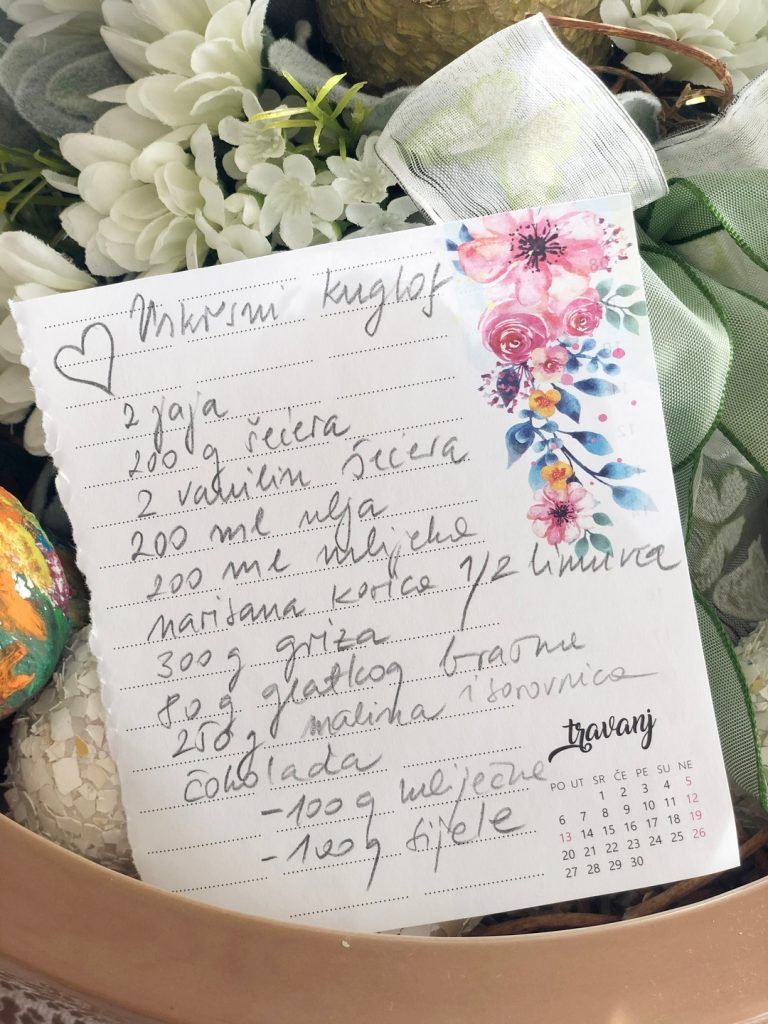 Uskrsni kuglof
2 jaja
200 g šećera
2 vanilin šećera
200 ml ulja
200 ml mlijeka
narisana korica 1/2 limuna
300 g griza
80 g glatkog brašna
250 g malina i borovnica
čokolada
-100 g mliječne
-100 g bijele
travanj
PO UT SR ČE PE SU NE
1 2 3 4 5
6 7 8 9 10 11 12
13 14 15 16 17 18 19
20 21 22 23 24 25 26
27 28 29 30